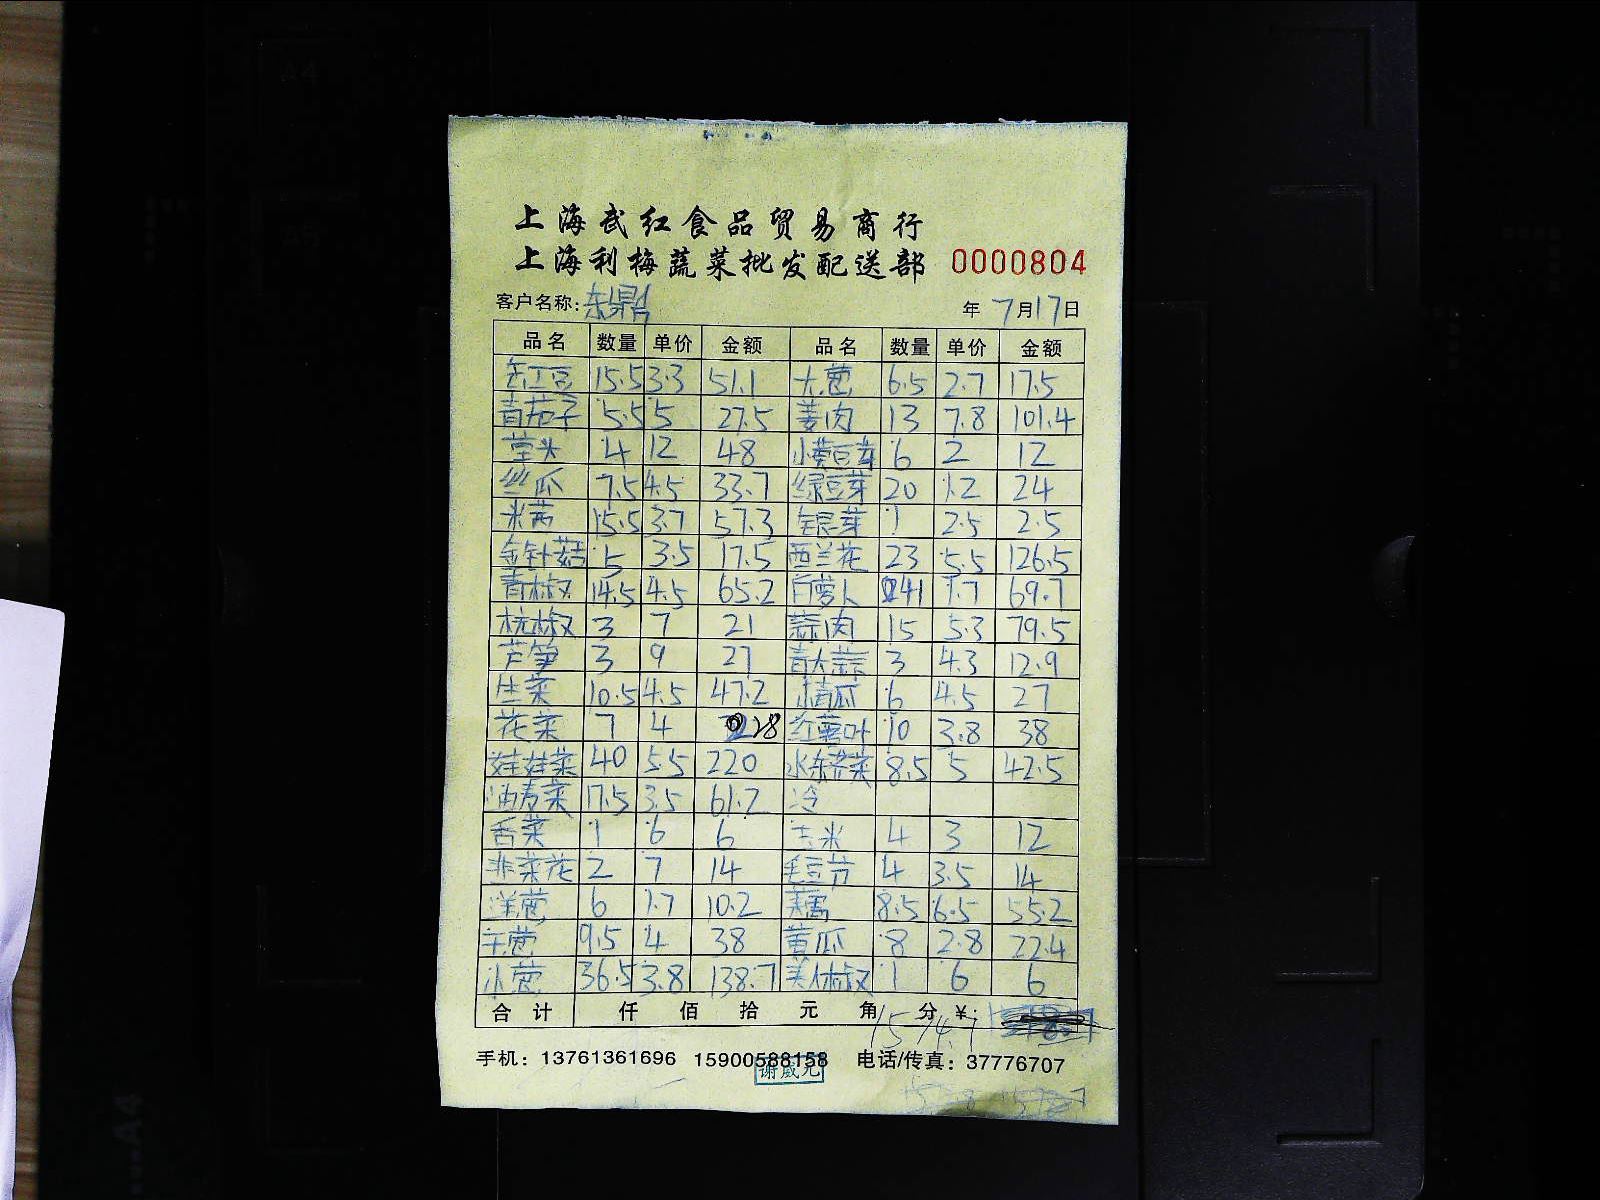 上海武红食品贸易商行
上海利梅蔬菜批发配送部 0000804
客户名称: 东鼎 年 7月17日
品名 数量 单价 金额 品名 数量 单价 金额
长江豆 15.5 3.3 51.1 大葱 6.5 2.7 17.5
青茄子 5.5 5 27.5 姜肉 13 7.8 101.4
茔头 4 12 48 小黄豆芽 6 2 12
丝瓜 7.5 4.5 33.7 绿豆芽 20 1.2 24
米茜 15.5 3.7 57.3 银芽 1 2.5 2.5
金针菇 5 3.5 17.5 西兰花 23 5.5 126.5
青椒 14.5 4.5 65.2 白萝卜 41 1.7 69.7
杭椒 3 7 21 蒜肉 15 5.3 79.5
芦笋 3 9 27 青大蒜 3 4.3 12.9
生菜 10.5 4.5 47.2 小青瓜 6 4.5 27
花菜 7 4 28 红薯叶 10 3.8 38
娃娃菜 40 5.5 220 水东芥菜 8.5 5 42.5
油麦菜 17.5 3.5 61.2 冷
香菜 1 6 6 玉米 4 3 12
韭菜花 2 7 14 毛豆节 4 3.5 14
洋葱 6 1.7 10.2 莲藕 8.5 6.5 55.2
干葱 9.5 4 38 黄瓜 8 2.8 22.4
小葱 36.5 3.8 138.7 美人椒 1 6 6
合计 仟 佰 拾 元 角 分 ¥: 1514.7
手机: 13761361696 15900588158 电话/传真: 37776707
谢成元